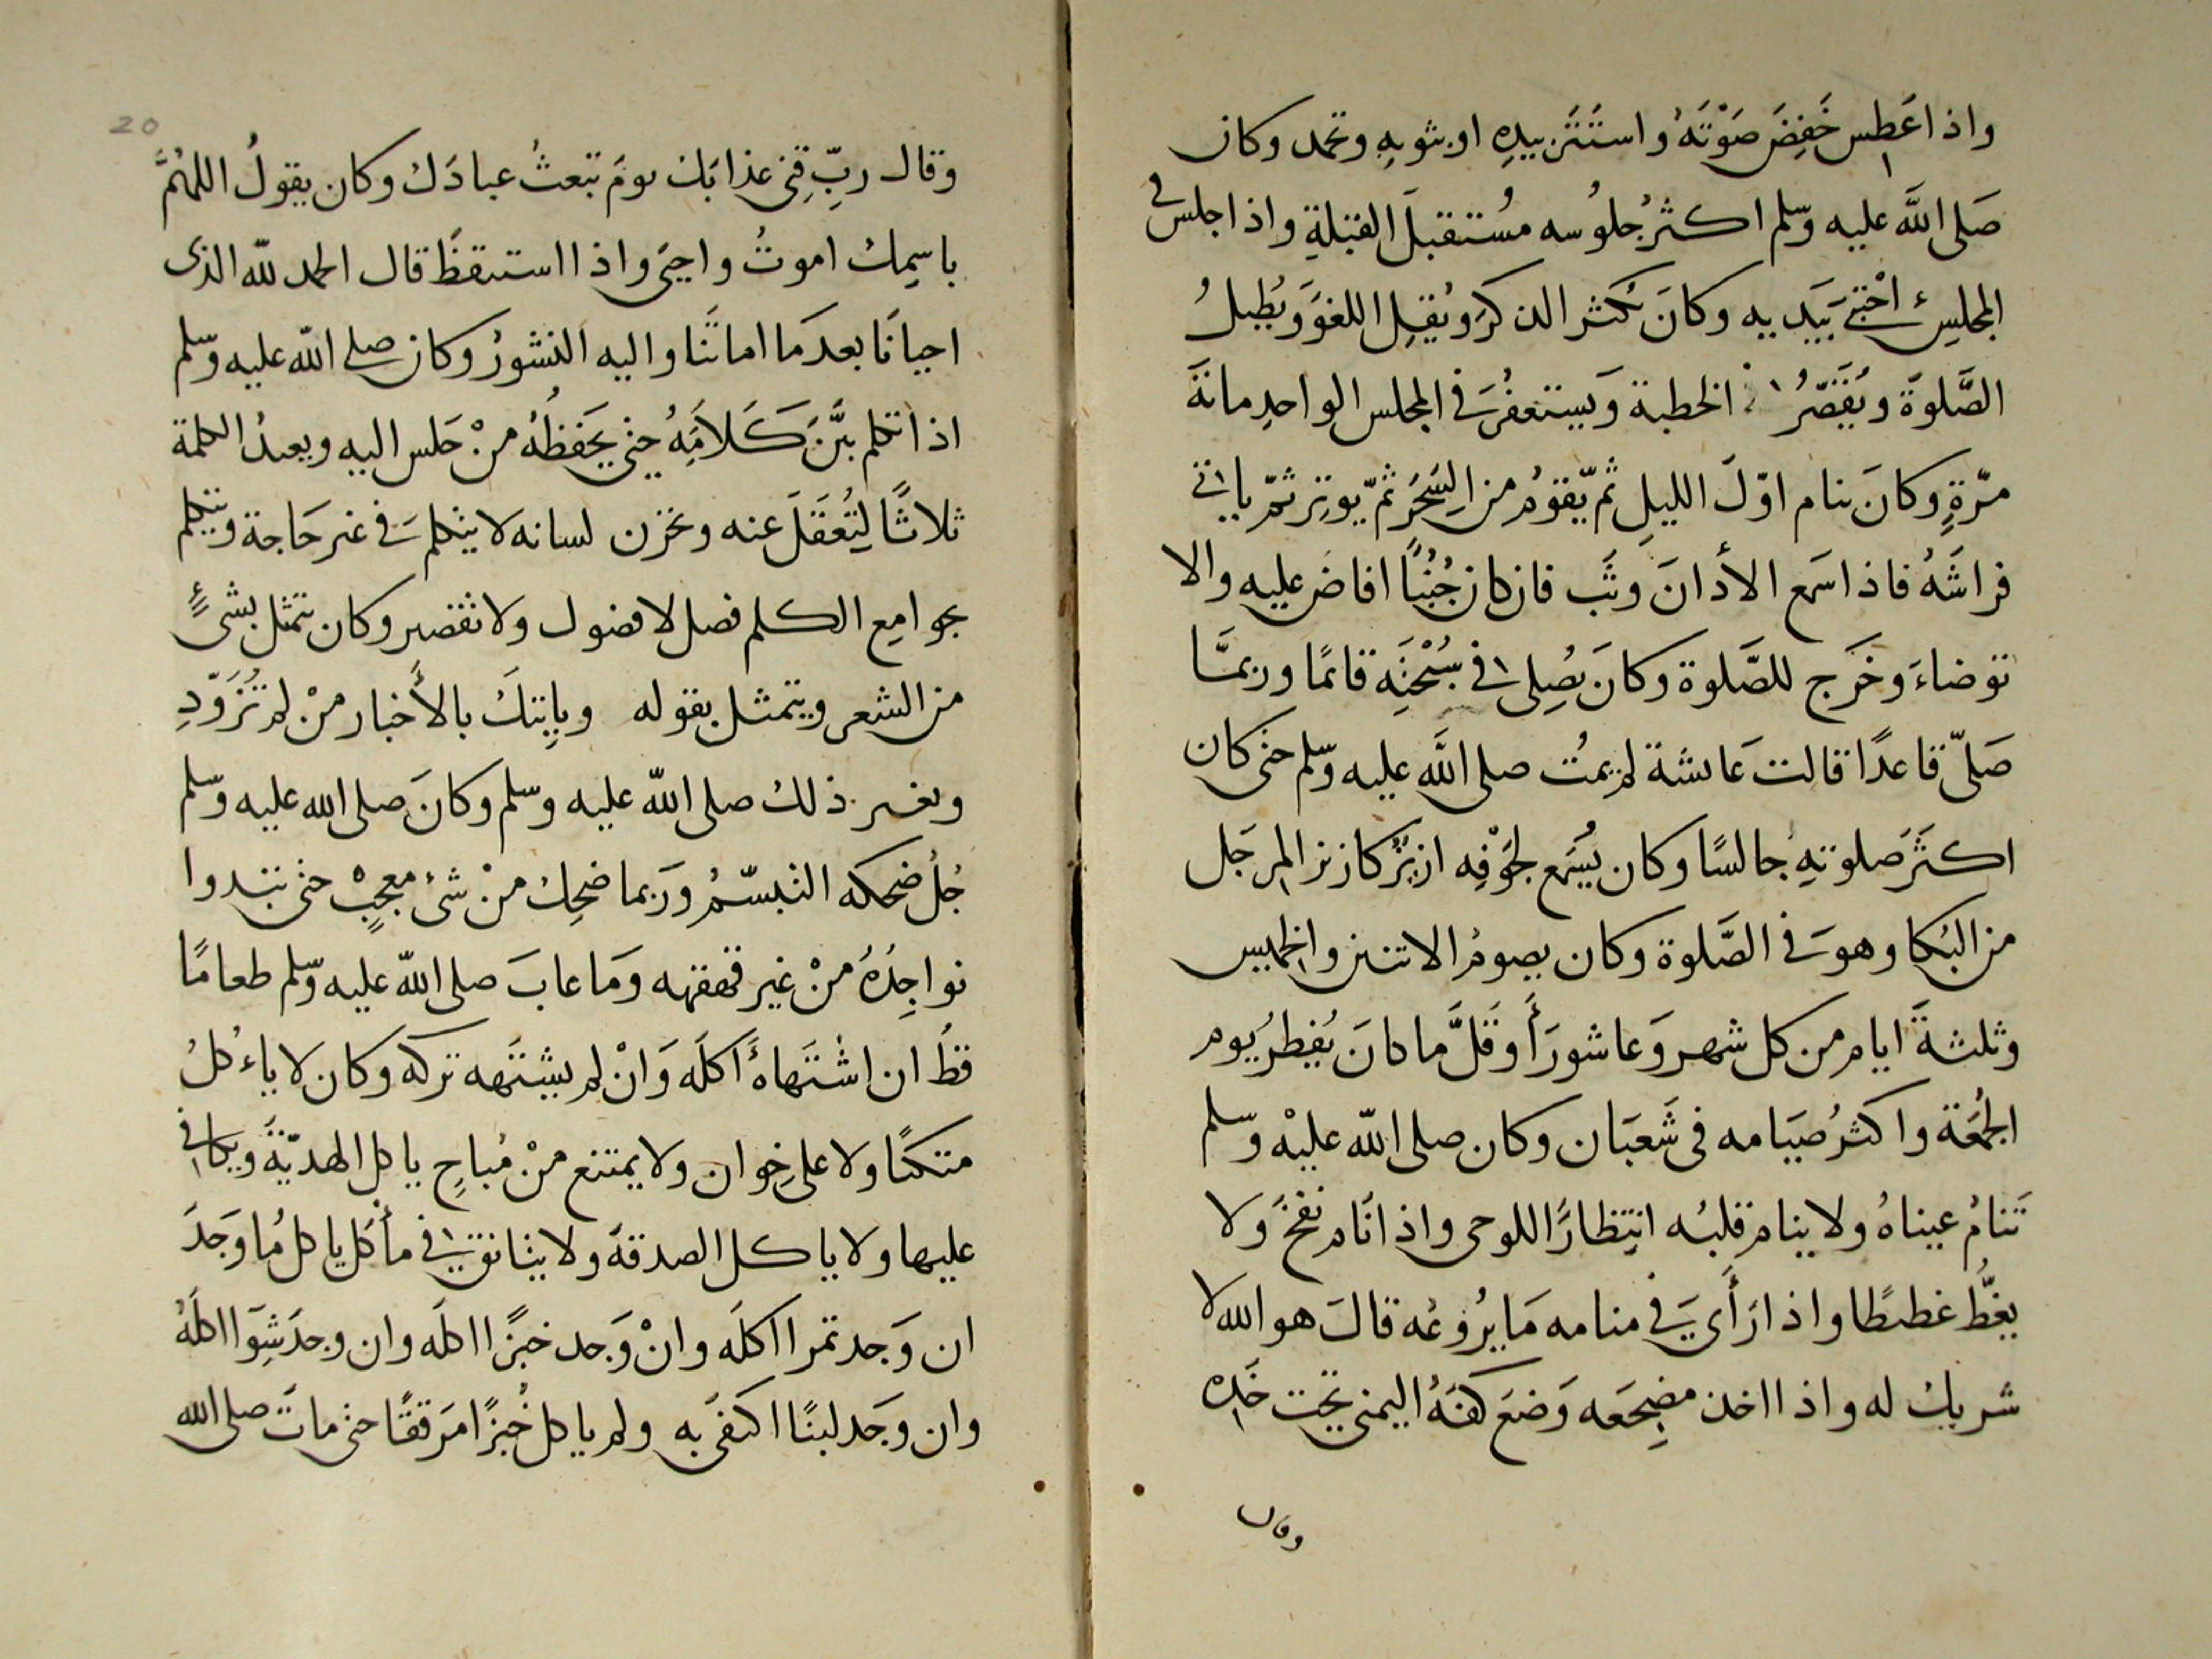 واذا عَطِس خَفِضَ صَوْتَهُ واستَتَر بيدِهِ او بثوبِهِ وتحمد وكان
صَلى اللَّه عليه وسّلم اكثرُ جُلوُسه مُستقبلَ القبلةِ واذا جلس في
المجلِسِ احْتبى بَيَديه وكانَ يُكثر الذكرَ ويُقِلِ اللغوَ ويُطيلُ
الصَّلوةَ ويُقَصّرُ الخطبة وَيستغفرُ في المجلس الواحدِ مائةَ
مرّةٍ وكانَ ينام اوّلَ الليلِ ثم يّقومُ من السَحَرُ ثمّ يوتِر ثمّ ياتى
فراشَهُ فاذا سَمع الأذانَ وثَب فان كان جُنُبًا افاض عليه والا
توضاءَ وخَرَج للصَّلوة وكانَ يُصِلى في سُبْحَتِه قائمًا وربمَّا
صَلّى قاعدًا قالت عَائشة لم يمُت صلى اللَّه عليه وسّلم حتى كان
اكثَرَ صَلوتهِ جالسًا وكان يُسمَع لجَوْفِه ازيزٌ كازيز المِرجَل
من البُكا وهوَ في الصَّلوة وكان يصومُ الاثنين والخميس
وثلثةَ ايام من كل شهر وَعاشورَأَ وقَلَّ ما كانَ يُفِطرُ يوم
الجُمَعة واكثرُ صيَامه في شَعبَان وكان صلى اللّه عليْه وسّلم
تَنامُ عيناهُ ولا ينام قلبُه انتِظارًا للوحى واذا نَام نفخَ ولا
يغطُّ غطيطًا واذا رَأَى في منامه مَا يرُوعُه قالَ هو الله لا
شريك له واذا اخذ مضجِعَه وَضعَ كفَهُ اليمنى تحت خَدِه
وقال
20
وقال ربِّ قِنى عذابَك يومَ تبَعثُ عبادَك وكان يقولُ اللهُمَّ
باسمِك اموتُ واحيَى واذا استيقظَ قال الحمد للّه الذى
احيانَا بعدَ مَا اماتَنا واليه النشورُ وكان صلى اللّه عليه وسّلم
اذا تكلم بيَّنَ كَلَامَهُ حتى يَحَفظُهُ منْ جَلس اليه ويعيدُ الكلمة
ثلاثًا لِتُعُقَلَ عنه ويخزن لسانه لا يتكلم في غير حَاجة ويتكلم
بجوامِع الكلم فصل لا فضول ولا تقصير وكان يتمثل بشىءٍ
من الشعر ويتمثل بقوله وياتِيكَ بالأَخبار منْ لم تُزَوّدِ
وبغير ذلك صلى اللّه عليه وسلم وكانَ صلى الله عليه وسّلم
جُلُ ضحكه التبسّمُ ورَبما ضحِك منْ شىء معجبٍ حتى تبدوا
نواجِذهُ منْ غير قهقهه وَمَا عابَ صلى اللّه عليه وسّلم طعامًا
قطُ ان اشتَهاهُ اَكلَه وَانْ لم يشتَهه تركه وكان لا ياءكلُ
متكئًا ولا على خِوان ولا يمتنع منْ مُباحِ ياكل الهدّيةَ ويكافى
عليها ولا ياكل الصدقةَ ولا يتانق في مأكل ياكل مُا وَجَدَ
ان وَجد تمرا اكلَه وانْ وَجد خبزًا اكلَه وان وجدَ شِوَا اكلَهُ
وان وجَد لبنًا اكتفى به ولم ياكل خُبزًا مرَققًا حتى ماتَ صلى الله